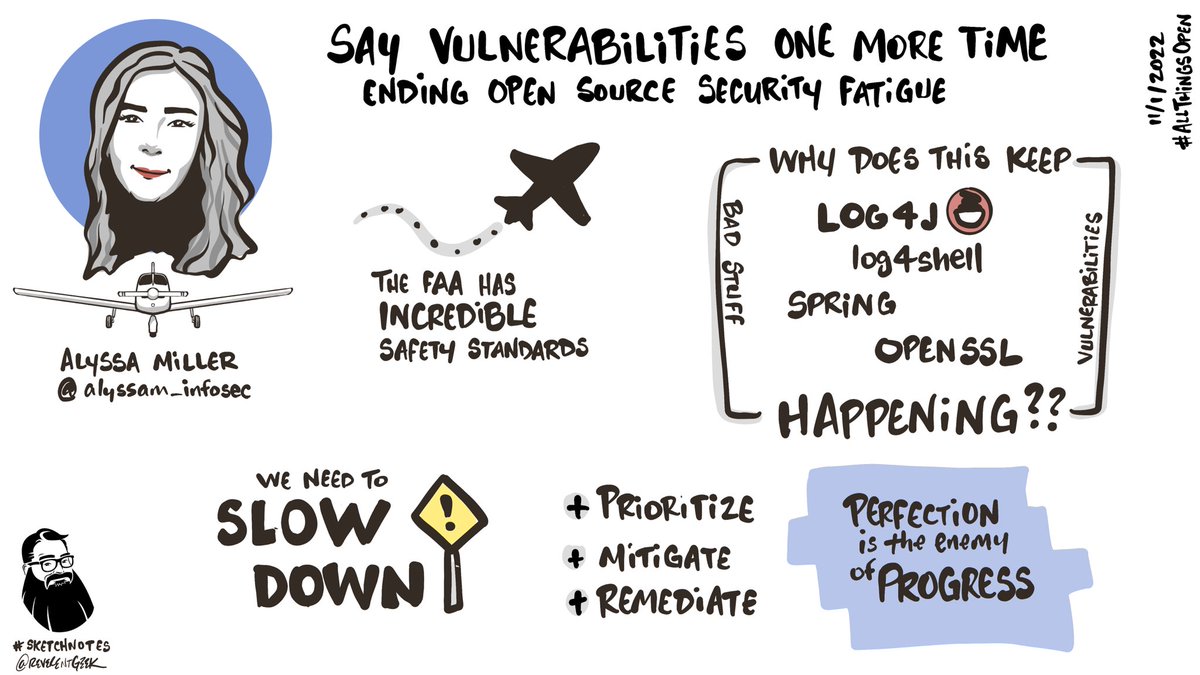 SAY VULNERABILITIES ONE MORE TIME
ENDING OPEN SOURCE SECURITY FATIGUE
11/1/2022
#ALLTHINGSOPEN
ALYSSA MILLER
@alyssam_infosec
THE FAA HAS
INCREDIBLE
SAFETY STANDARDS
WHY DOES THIS KEEP
BAD STUFF
LOG4J
log4shell
SPRING
OPENSSL
VULNERABILITIES
HAPPENING??
WE NEED TO
SLOW
DOWN
!
+ PRIORITIZE
+ MITIGATE
+ REMEDIATE
PERFECTION
is the enemy
of PROGRESS
#SKETCHNOTES
@REVERENTGEEK